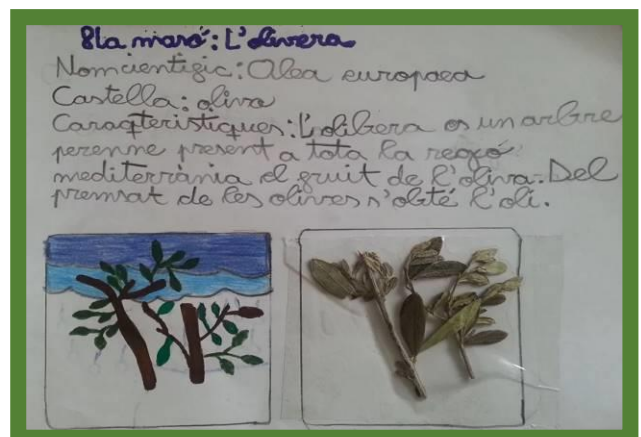 8la maró: L'olivera
Nomcientigic: Olea europaea
Castella: oliva
Caraqterístiques: L'olibera es un arbre
perenne present a tota la regió
mediterrània el gruit de l'oliva. Del
premsat de les olives s'obté l'oli.